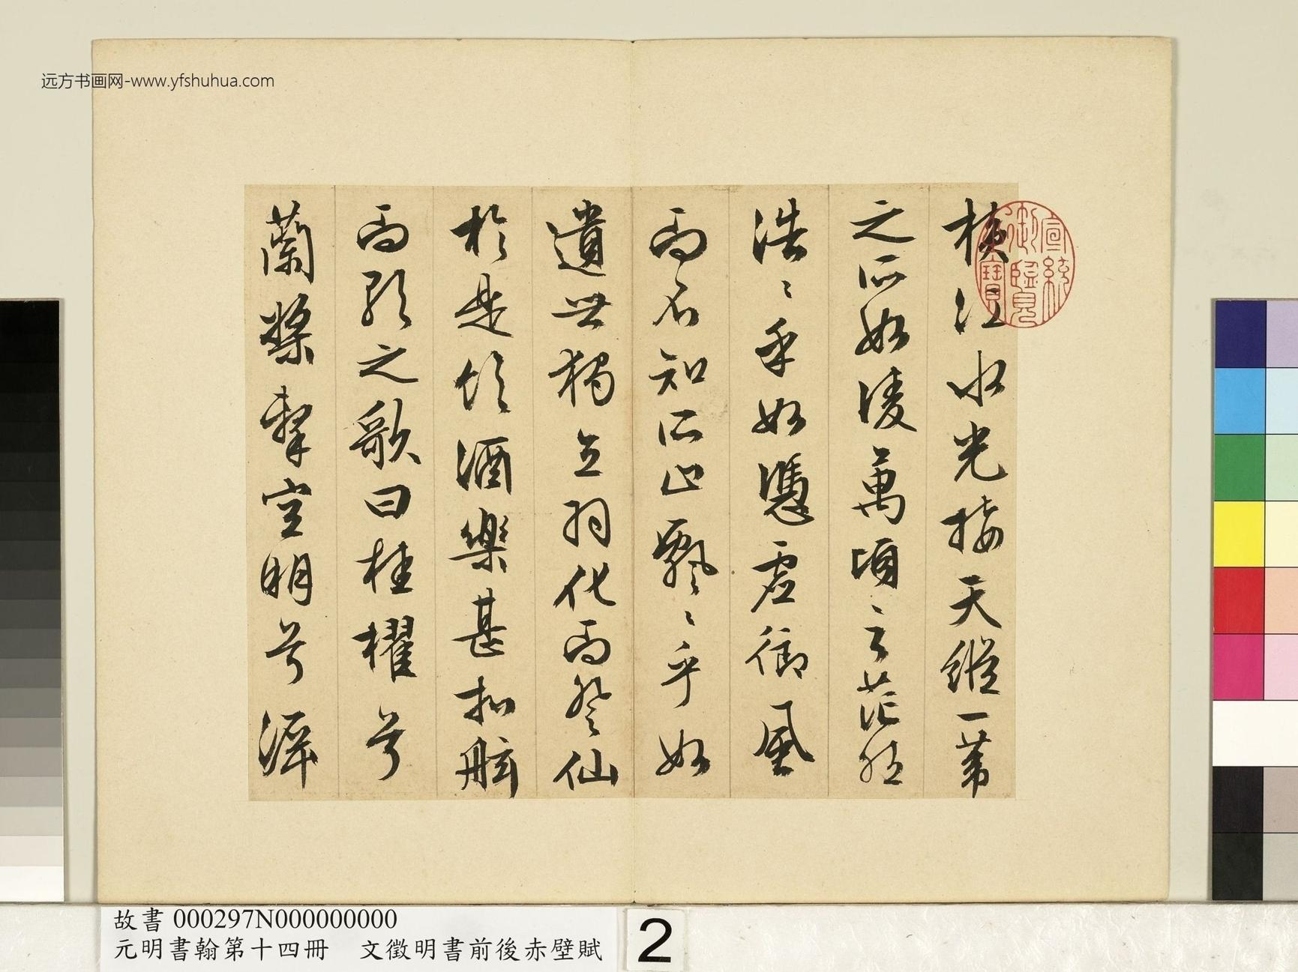 远方书画网-www.yfshuhua.com
橫江水光接天縱一葦
之所如凌萬頃之茫然
浩〻乎如憑虛御風
而不知所止飄〻乎如
遺世獨立羽化而登仙
於是飲酒樂甚扣舷
而歌之歌曰桂櫂兮
蘭槳擊空明兮泝
宣統御覽之寶
故書 000297N000000000
元明書翰第十四冊 文徵明書前後赤壁賦
2